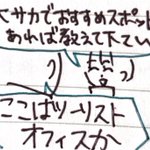 大サカでおすすめスポット
あれば教えて下てい
ここはツーリスト
オフィスか